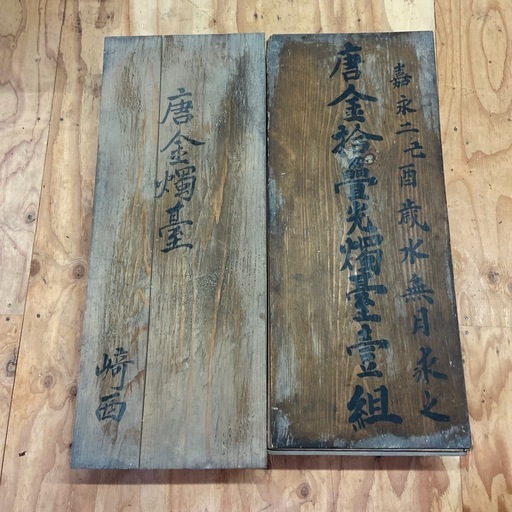 嘉永二己酉歳水無月求之
唐金拾疊光燭臺壹組
唐金燭臺
崎西